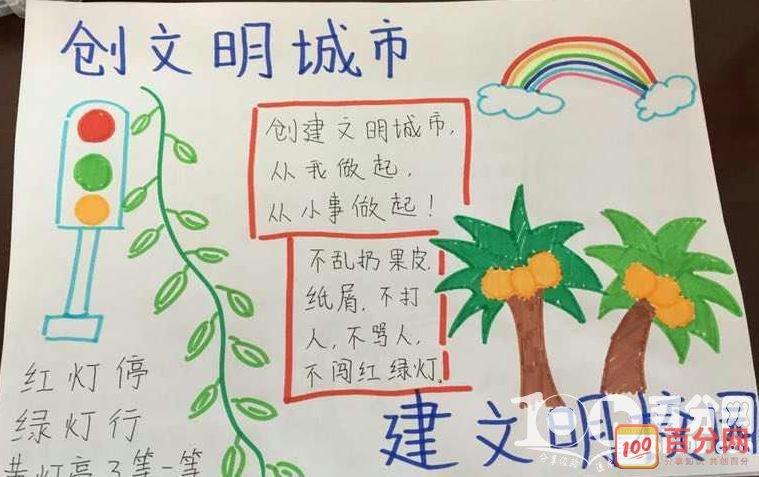 创文明城市
创建文明城市，
从我做起，
从小事做起！
不乱扔果皮
纸屑，不打
人，不骂人，
不闯红绿灯。
红灯停
绿灯行
黄灯亭了等一等
建文明
100
百分网
分享知识 共创百分